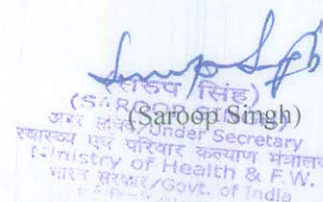 (सरूप सिंह)
(SAROOP SINGH)
(Saroop Singh)
अवर सचिव/Under Secretary
स्वास्थ्य एवं परिवार कल्याण मंत्रालय
Ministry of Health & F.W.
भारत सरकार/Govt. of India